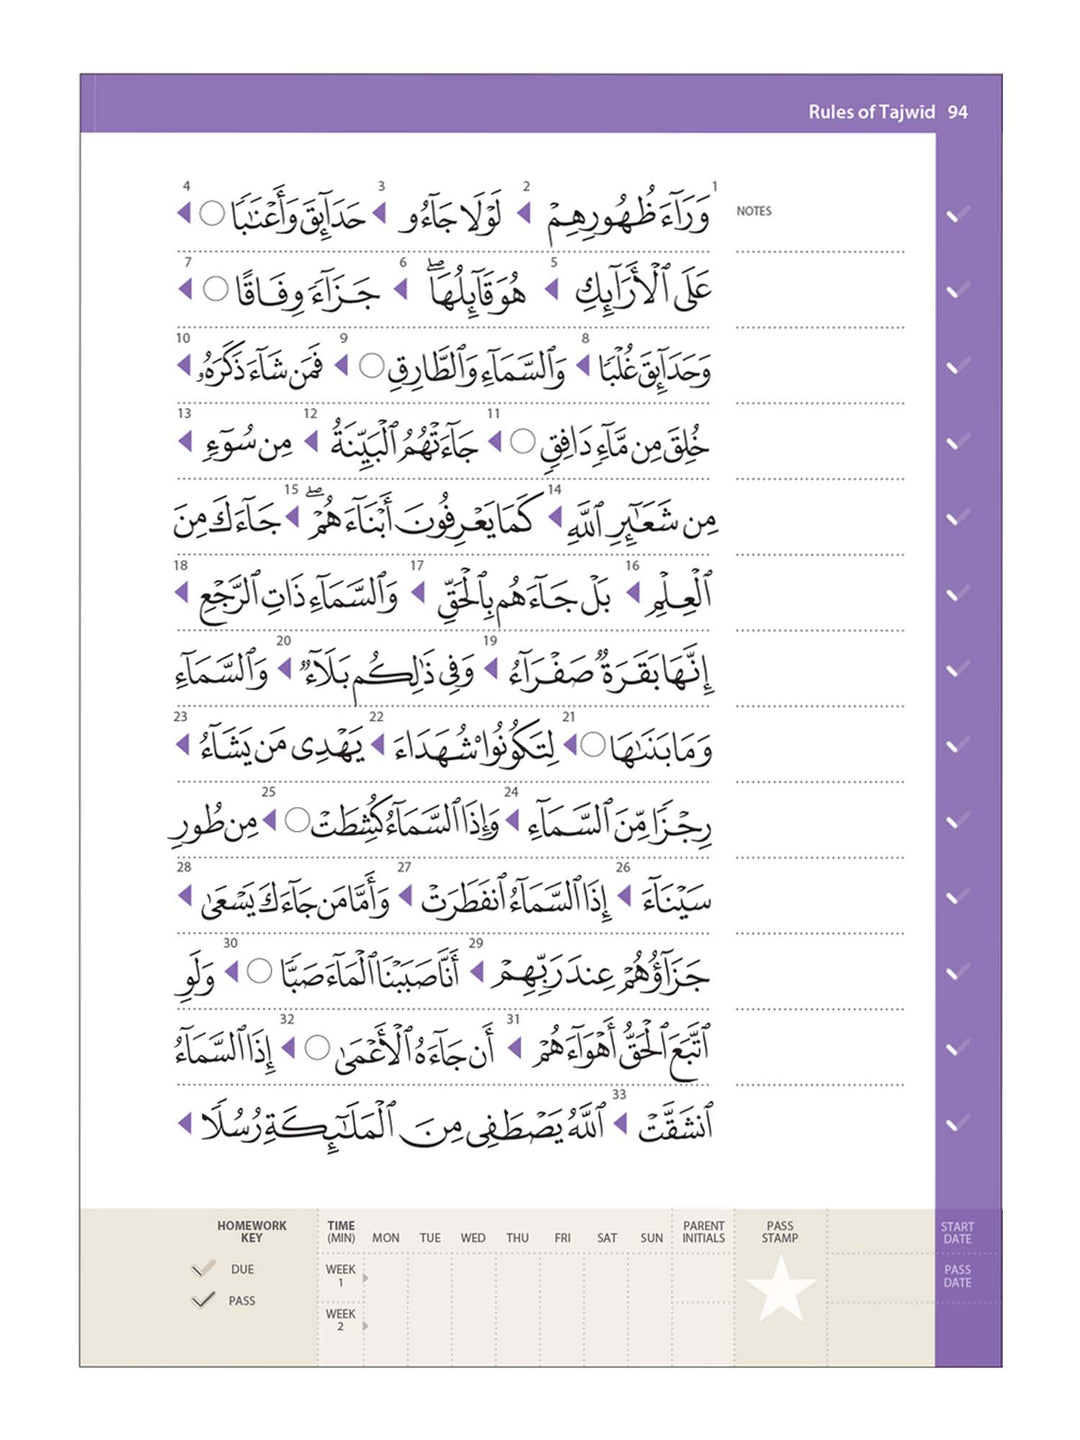 Rules of Tajwīd 94
NOTES
1 وَرَآءَ ظُهُورِهِمْ ◀ 2 لَوْلَا جَآءُو ◀ 3 حَدَآئِقَ وَأَعْنَٰبًا ○ ◀ 4
عَلَى ٱلْأَرَآئِكِ ◀ 5 هُوَ قَآئِلُهَاۖ ◀ 6 جَزَآءً وِفَاقًا ○ ◀ 7
وَحَدَآئِقَ غُلْبًا ◀ 8 وَٱلسَّمَآءِ وَٱلطَّارِقِ ○ ◀ 9 فَمَن شَآءَ ذَكَرَهُۥ ◀ 10
خُلِقَ مِن مَّآءٍ دَافِقٍ ○ ◀ 11 جَآءَتْهُمُ ٱلْبَيِّنَةُ ◀ 12 مِن سُوٓءٍ ◀ 13
مِن شَعَآئِرِ ٱللَّهِ ◀ 14 كَمَا يَعْرِفُونَ أَبْنَآءَهُمْۖ ◀ 15 جَآءَكَ مِنَ
ٱلْعِلْمِ ◀ 16 بَلْ جَآءَهُم بِٱلْحَقِّ ◀ 17 وَٱلسَّمَآءِ ذَاتِ ٱلرَّجْعِ ◀ 18
إِنَّهَا بَقَرَةٌ صَفْرَآءُ ◀ 19 وَفِى ذَٰلِكُم بَلَآءٌ ◀ 20 وَٱلسَّمَآءِ
وَمَا بَنَىٰهَا ○ ◀ 21 لِتَكُونُوا۟ شُهَدَآءَ ◀ 22 يَهْدِى مَن يَشَآءُ ◀ 23
رِجْزًا مِّنَ ٱلسَّمَآءِ ◀ 24 وَإِذَا ٱلسَّمَآءُ كُشِطَتْ ○ ◀ 25 مِن طُورِ
سَيْنَآءَ ◀ 26 إِذَا ٱلسَّمَآءُ ٱنفَطَرَتْ ◀ 27 وَأَمَّا مَن جَآءَكَ يَسْعَىٰ ◀ 28
جَزَآؤُهُمْ عِندَ رَبِّهِمْ ◀ 29 أَنَّا صَبَبْنَا ٱلْمَآءَ صَبًّا ○ ◀ 30 وَلَوِ
ٱتَّبَعَ ٱلْحَقُّ أَهْوَآءَهُمْ ◀ 31 أَن جَآءَهُ ٱلْأَعْمَىٰ ○ ◀ 32 إِذَا ٱلسَّمَآءُ
ٱنشَقَّتْ ◀ 33 ٱللَّهُ يَصْطَفِى مِنَ ٱلْمَلَٰٓئِكَةِ رُسُلًا ◀
HOMEWORK KEY
DUE
PASS
TIME (MIN) MON TUE WED THU FRI SAT SUN PARENT INITIALS PASS STAMP START DATE
WEEK 1 PASS DATE
WEEK 2